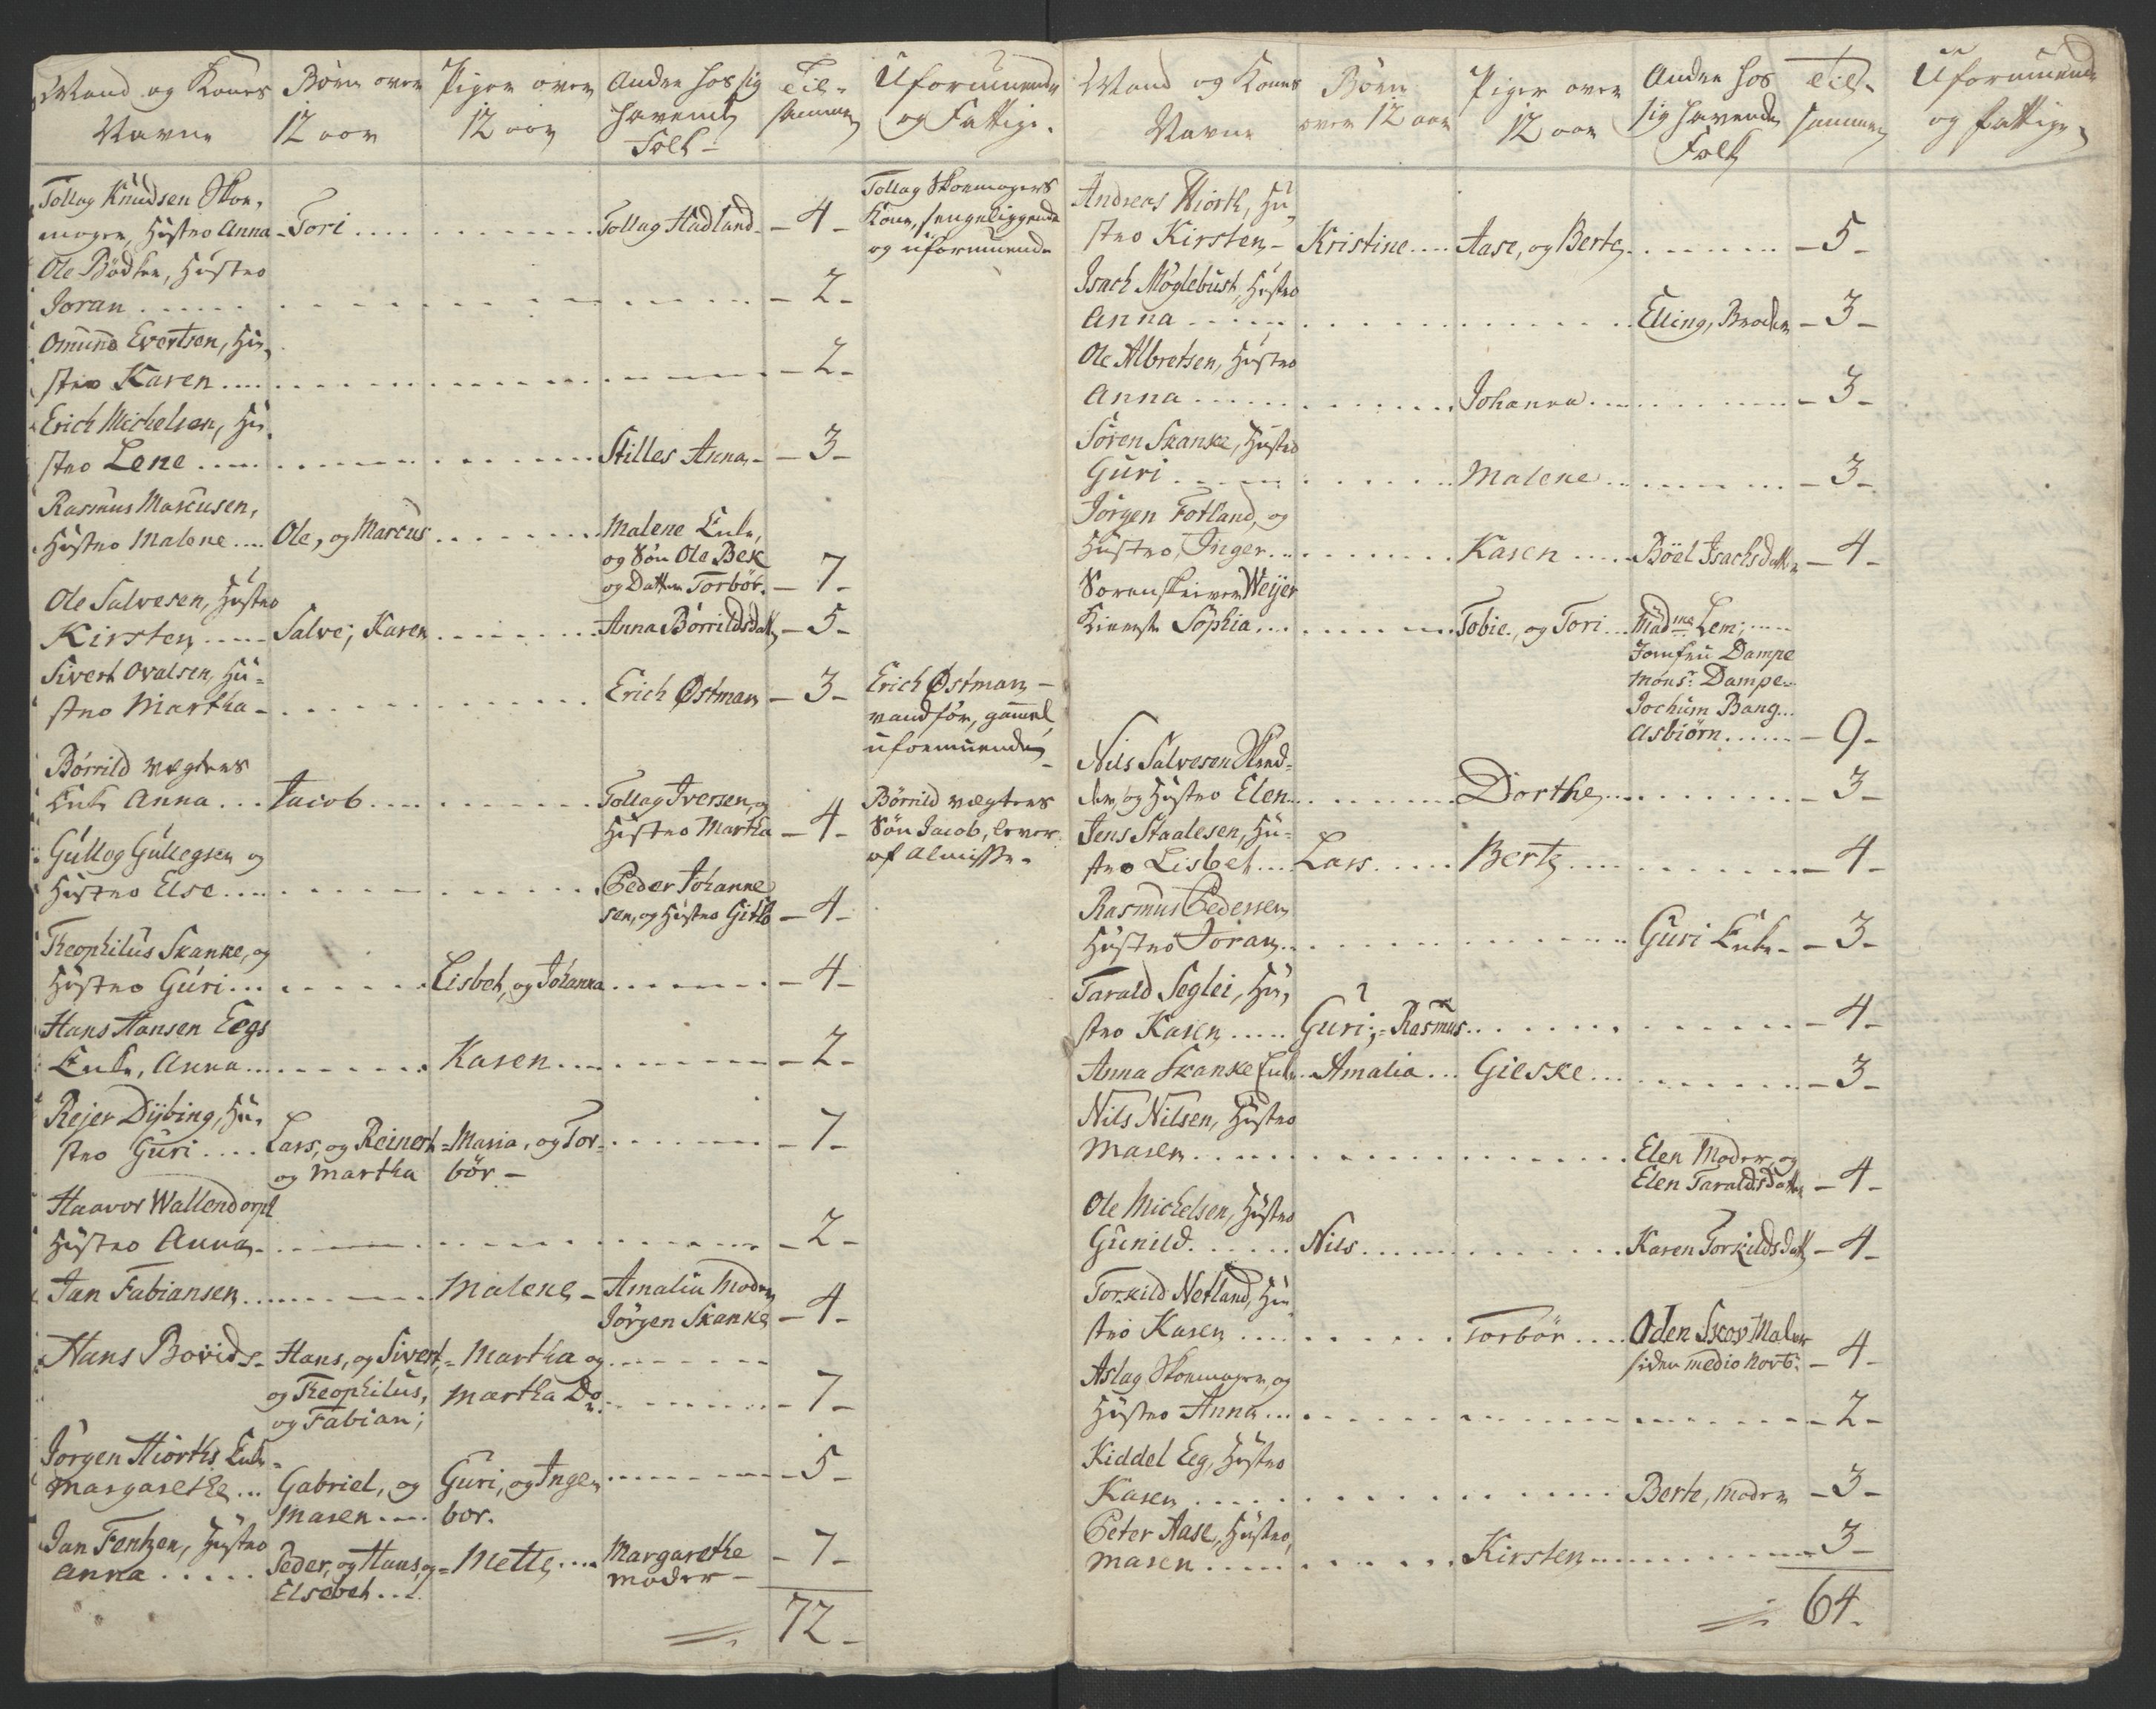 Mand og Kones Navne | Börn over 12 aar | Piger over 12 aar | Anden hos sig havende Folk | Tilsammen | Uformuende og Fattige.
Tollag Knudsen Skoe,
mager, Hustro Anna - Tori .... Tollag Hadland - 4 -
Tollag Skoemagers
Kone, sengeliggende
og uformuende
Ole Bödker, Hustro
Joran ...... - 2 -
Omund Evertsen, Hu,
stro Karen .... - 2 -
Erich Michelsen, Hu,
stro Lene .... Stilles Anna - - 3 -
Rasmus Marcusen,
Hustro Malene .... Ole, og Marcus ... Malene Enke,
og Sön Ole Bek
og Datter Torbör. - 7 -
Ole Salvesen, Hustro
Kirsten .... Salve; Karen .... Anna Börrildsdatt - 5 -
Sivert Ovalsen, Hu=
stro Martha - .... Erich Østman - 3 -
Erich Østman -
vandför, gammel,
uformuende -
Börrild Vægters
Enke Anna ... Jacob .... Tollag Iversen, og
Hustro Martha - 4 -
Börrild Vægters
Sön Jacob, lever
af Almisse.
Gullog Gullegsen og
Hustro Else .... Peder Johanne
sen, og Hustro Gitlö - 4 -
Theophilus Skanke, og
Hustro Guri ... Lisbet, og Johanna ... - 4 -
Hans Hansen Eegs
Enke, Anna ... Karen ... - 2 -
Rejer Dÿbing, Hu,
stro Guri .... Lars, og Reinert = Maria, og Tor= ... - 7 -
og Martha bör. -
Haavor Wallendorph
Hustro Anna. .... - 2 -
Jan Fabiansen ... Malene - Amalia Moder
Jörgen Skanke - 4 -
Hans Bovids - Hans, og Sivert, = Martha og ...
og Theophilus, Martha Do. ... - 7 -
og Fabian;
Jörgen Hiorths Enke
Margarethe ... Gabriel, og Guri, og Inge, ... - 5 -
Maren .... bor.
Jan Fentzen, Hustro
Anna ..... Peder, og Hans, og = Mette .... Margarethe - 7 -
Elsebeh ... Moder -
72 -
Mand og Kones Navne | Börn over 12 aar | Piger over 12 aar | Anden hos sig havende Folk | Tilsammen | Uformuende og fattige.
Andreas Hiorth, Hu,
stro Kirsten - Kristine .... Aase, og Berte ... - 5 -
Isach Möglebust, Hustro
Anna ..... Elling, Broder - 3 -
Ole Albretsen, Hustro
Anna ..... Johanna .... - 3 -
Sören Skanke, Hustro
Guri .... Malene ... - 3 -
Jörgen Fotland, og
Hustro, Inger ... Karen .... Böel Isachsdatt - 4 -
Sorenskriver Weijer
Kiereste Sophia ... Tobie, og Tori ... Madme Lem; ...
Jomfru Dampe
Monsr Dampe ..
Jochum Bang ...
Asbiörn ...... - 9 -
Nils Salvesen Skræd=
der, og Hustro Elen ... Dorthe ... - 3 -
Jens Staalesen, Hu=
stro Lisbet .... Lars ..... Berte .... - 4 -
Rasmus Pedersen
Hustro Joran ... Guri Enke - - 3 -
Tarald Seglei, Hu,
stro Karen ..... Guri; = Rasmus ... - 4 -
Anna Skanke Enke .. Amalia ... Gieske ... - 3 -
Nils Nilsen, Hustro
Maren .... Elen Moder, og
Elen Taraldsdatter - 4 -
Ole Michelsen, Hustro
Gunild ...... Nils .... Karen Torkildsdatt - 4 -
Torkild Netland, Hu
stro Karen .... Torbör .... Oden Skov Maler
siden medio Novbr. - 4 -
Aslag Skoemager, og
Hustro Anna ... - 2 -
Kiddel Eeg, Hustro
Karen .... Berte, Moder - 3 -
Peter Aase, Hustro,
Maren ..... Kirsten ... 3 -
64 -